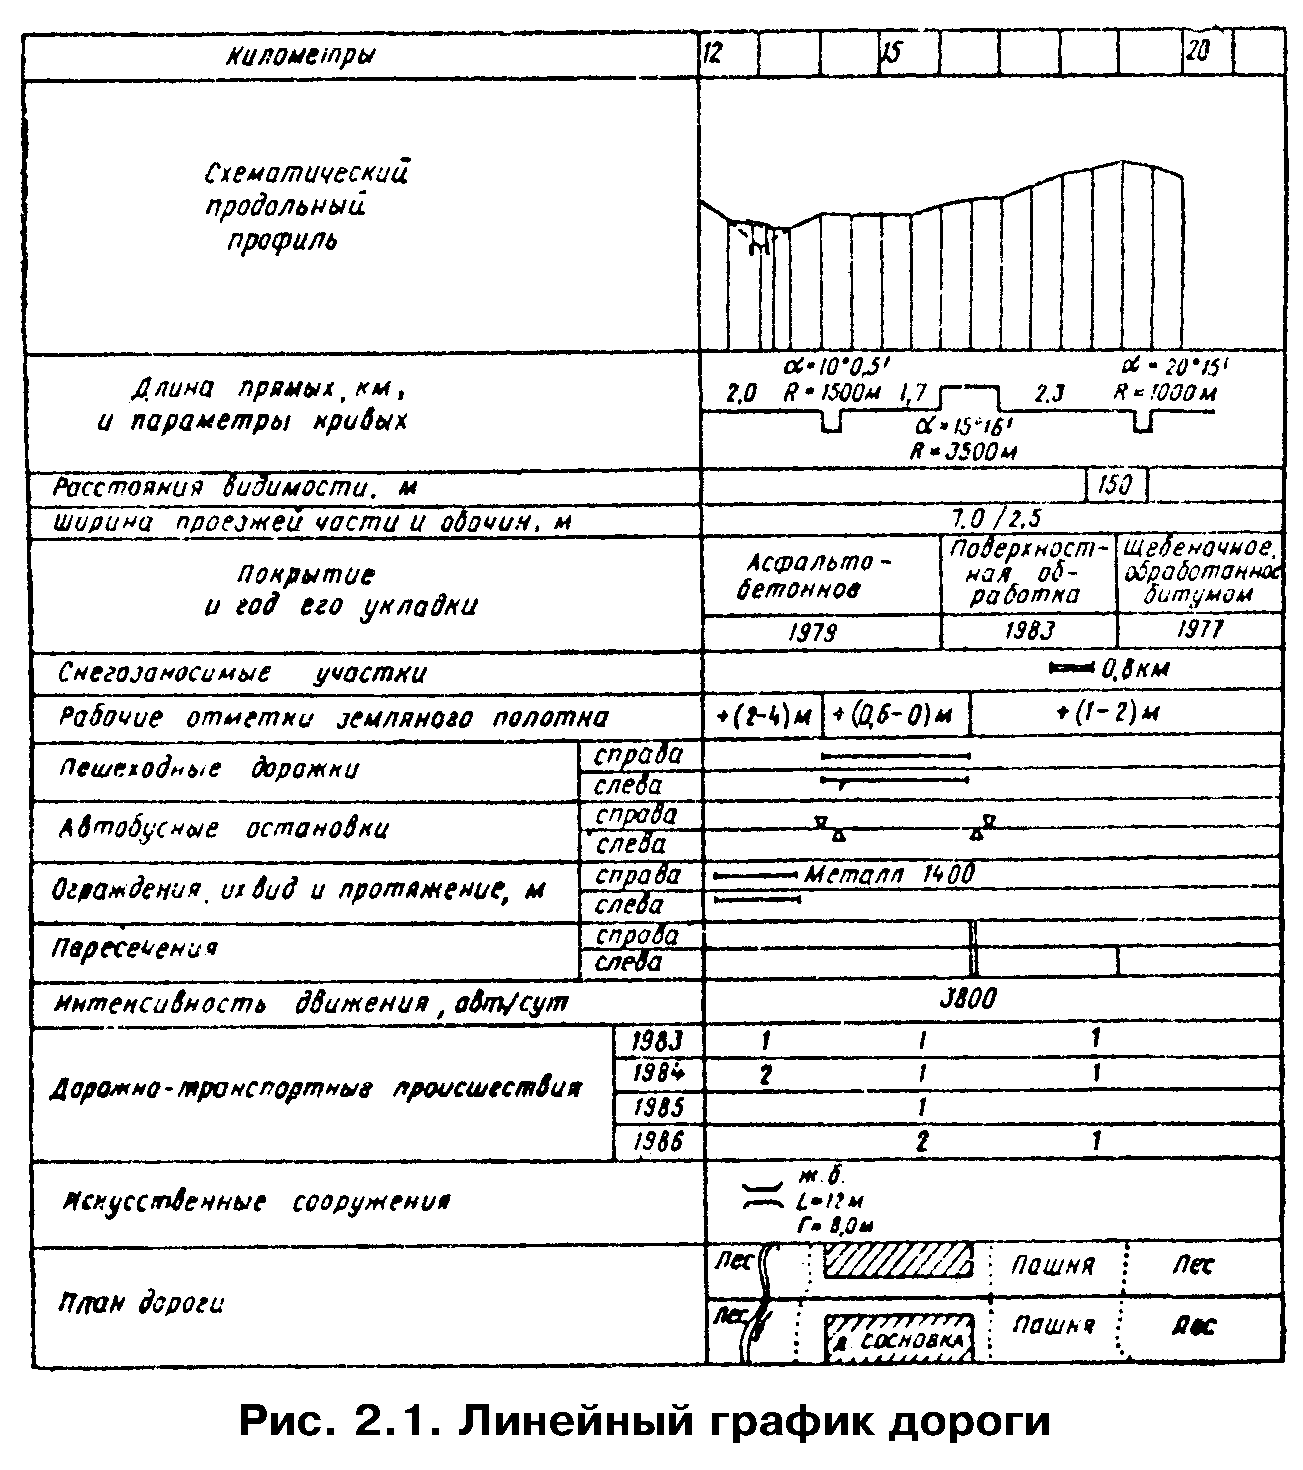 Километры
12 15 20
Схематический
продольный
профиль
Длина прямых, км,
и параметры кривых
α=10°0,5' α=20°15'
2,0 R=1500м 1,7 2,3 R=1000м
α=15°16'
R=3500м
Расстояния видимости, м
150
Ширина проезжей части и обочин, м
7,0/2,5
Покрытие
и год его укладки
Асфальто-
бетонное
Поверхност-
ная об-
работка
Щебеночное,
обработанное
битумом
1979 1983 1977
Снегозаносимые участки
0,8км
Рабочие отметки земляного полотна
+(2-4)м +(0,6-0)м +(1-2)м
Пешеходные дорожки
справа
слева
Автобусные остановки
справа
слева
Ограждения, их вид и протяжение, м
справа
Металл 1400
слева
Пересечения
справа
слева
Интенсивность движения, авт/сут
3800
Дорожно-транспортные происшествия
1983 1 1 1
1984 2 1 1
1985 1
1986 2 1
Искусственные сооружения
ж.б.
L=12м
Г=8,0м
План дороги
Лес Пашня Лес
Лес д. СОСНОВКА Пашня Лес
Рис. 2.1. Линейный график дороги